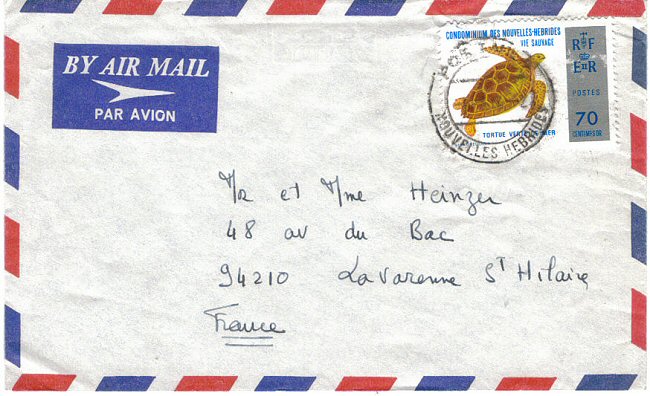 BY AIR MAIL
PAR AVION
CONDOMINIUM DES NOUVELLES-HEBRIDES
VIE SAUVAGE
RF
EIIR
POSTES
70
CENTIMES OR
TORTUE VERTE MER
NOUVELLES HEBRIDES
M/R et M/me Heinzer
48 av du Bac
94210 La Varenne St Hilaire
France